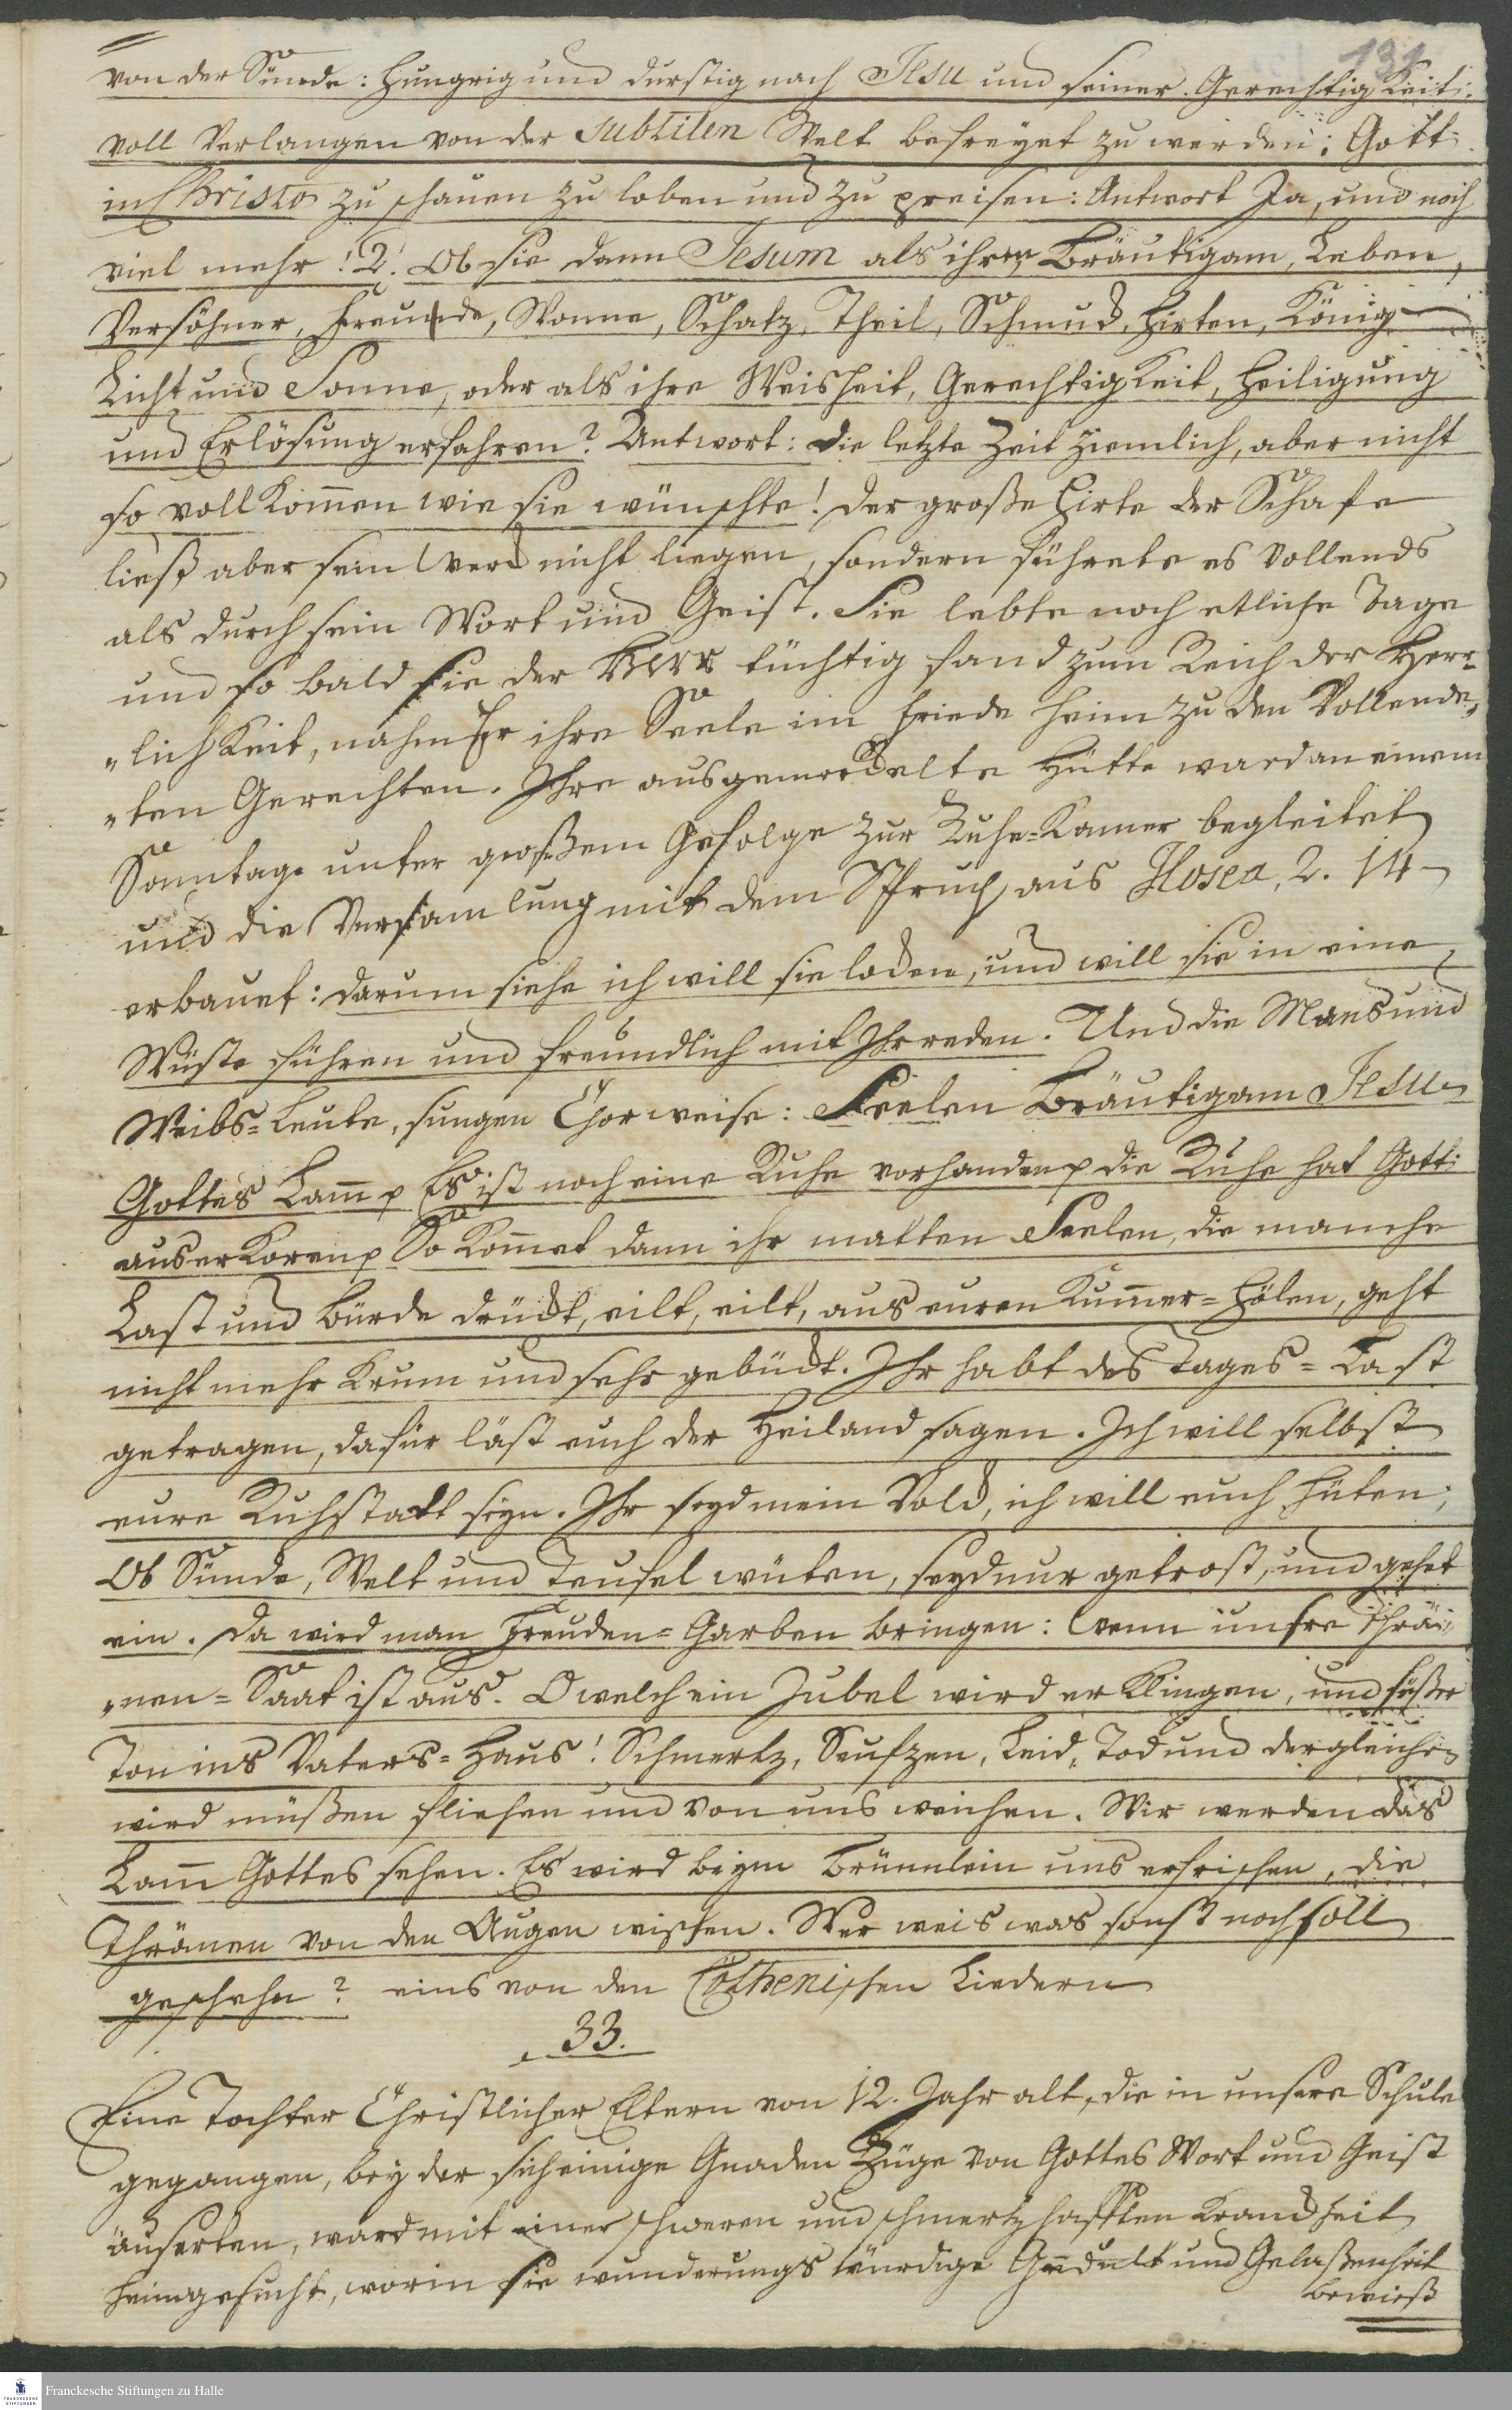 131
von der Sünde: hungrig und durstig nach Jesu und seiner Gerechtigkeit:
voll Verlangen von der subtilen Welt befreyet zu werden: Gott
in Christo zu schauen zu loben und zu preisen: Antwort Ja, und noch
viel mehr! 2. Ob sie dann Jesum als ihren Bräutigam, Leben,
Versöhner, Freunde, Wonne, Schatz, Theil, Schmuck, Hirten, König
Licht und Sonne, oder als ihre Weisheit, Gerechtigkeit, Heiligung
und Erlösung erfahren? Antwort: die letzte Zeit ziemlich, aber nicht
so vollkom̄en wie sie wünschte! der große Hirte der Schafe
ließ aber sein Werck nicht liegen, sondern führete es vollends
als durch sein Wort und Geist. Sie lebte noch etliche Tage
und so bald sie der Herr tüchtig fand zum Reich der Herr-
"lichkeit, nahm Er ihre Seele im Friede heim zu den Vollende-
"ten Gerechten. Ihre ausgemerckelte Hütte ward an einem
Sonntage unter großem Gefolge zur Ruhe-Kamer begleitet
und die Versamlung mit dem Spruch aus Hosea, 2. 14
erbauet: darum siehe ich will sie locken, und will sie in eine
Wüste führen und freundlich mit Ihr reden. Und die Mans und
Weibs-Leute, sungen Chorweise: Seelen Bräutigam Jesu
Gottes Lam̄ p Es ist noch eine Ruhe vorhanden p die Ruhe hat Gott
auserkoren p So kom̄et dann ihr matten Seelen, die manche
Last und Bürde drückt, eilt, eilt, aus euren Kum̄er-Hölen, geht
nicht mehr krum und sehr gebückt. Ihr habt des Tages-Last
getragen, dafür läst euch der Heiland sagen. Ich will selbst
eure Ruhstatt seyn. Ihr seyd mein Volck, ich will euch hüten;
Ob Sünde, Welt und Teufel wüten, seyd nur getrost, und gehet
ein. Da wird man Freuden-Garben bringen: Wenn unsre Thrä-
"nen-Saat ist aus. O welch ein Jubel wird erklingen, und süßer
Ton ins Vaters-Haus! Schmertz, Seufzen, Leid, Tod und dergleichen
wird müßen fliehen und von uns weichen. Wir werden das
Lam̄ Gottes sehen. Es wird beym Brünnlein uns erfrischen, die
Thränen von den Augen wischen. Wer weis was sonst noch soll
geschehn? eins von den Cöthenischen Liedern
33.
Eine Tochter Christlicher Eltern von 12. Jahr alt, die in unsere Schule
gegangen, bey der sich einige Gnaden Züge von Gottes Wort und Geist
äuserten, ward mit einer schweren und schmertzhafften Kranckheit
heimgesucht, worin sie wunderungs würdige Gedult und Gelaßenheit
bewieß
Franckesche Stiftungen zu Halle